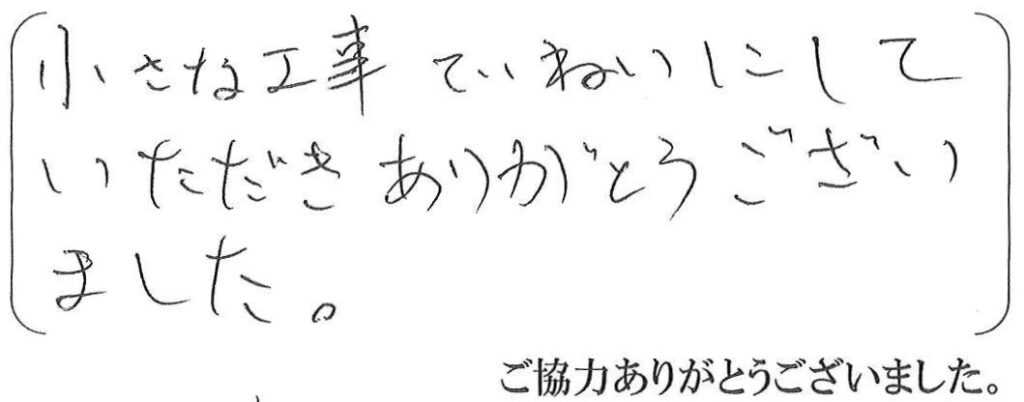 小さな工事ていねいにして
いただきありがとうござい
ました。
ご協力ありがとうございました。